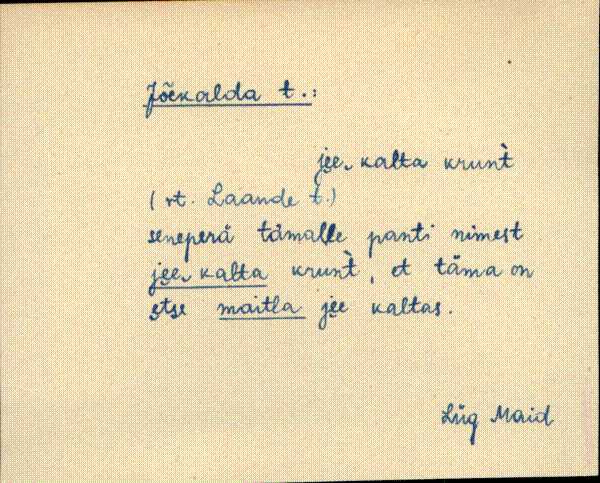 Jõekalda t.:
je̮e‿kalta krun̄t
(vt. Laande t.)
seneperä tämälle panti nimest
je̮e‿kalta krun̄t, et täma on
e̮tse maitla je̮e kaltas.
Lüg Maid